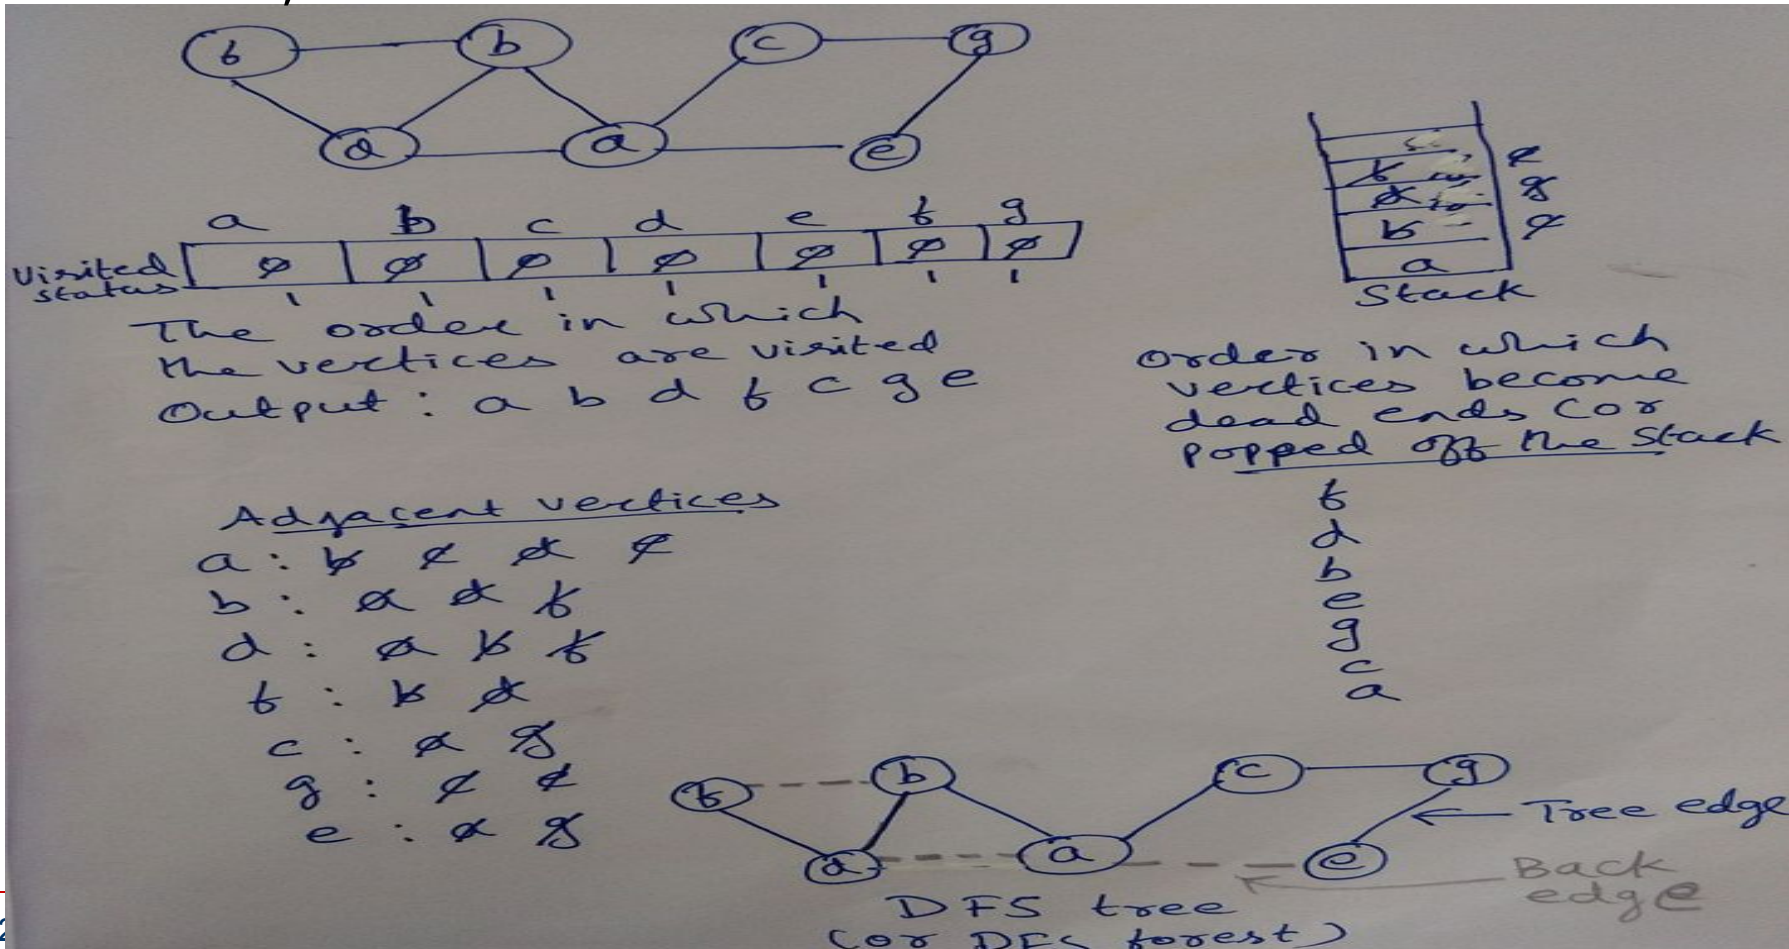 f b c g
d a e
a b c d e f g
Visited status
0 0 0 0 0 0 0
1 1 1 1 1 1 1
The order in which
the vertices are visited
Output : a b d f c g e
f e
d g
b c
a
Stack
Order in which
vertices become
dead ends (or
popped off the stack
f
d
b
e
g
c
a
Adjacent vertices
a : b c d e
b : a d f
d : a b f
f : b d
c : a g
g : c e
e : a g
f b c g
Tree edge
d a e
Back
edge
DFS tree
(or DFS forest)
2